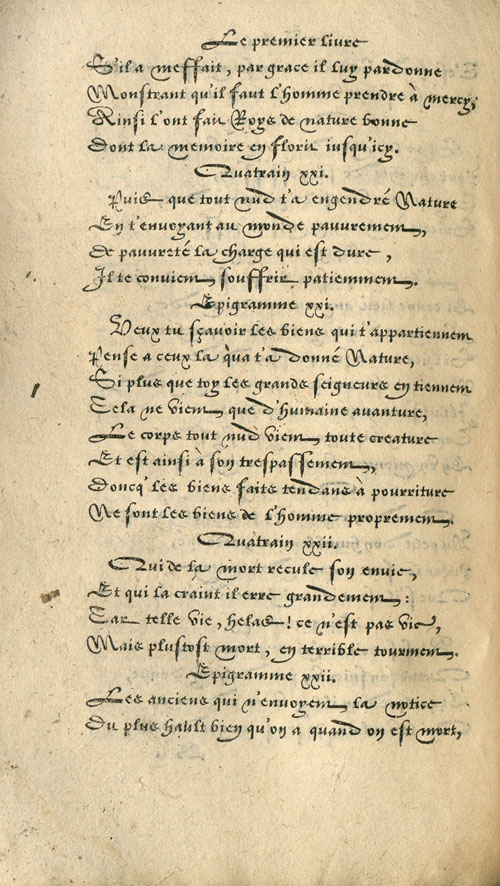 Le premier livre
S'il a meffait, par grace il luy pardonne
Monstrant qu'il faut l'homme prendre à mercy,
Ainsi l'ont fait Roys de nature bonne
Dont la memoire en florit iusqu'icy.
Quatrain xxi.
Puis que tout nud t'a engendré Nature
En t'envoyant au monde pauvrement,
De pauvreté la charge qui est dure,
Il te convient souffrir patiemment.
Epigramme xxi.
Veux tu sçavoir les biens qui t'appartiennent
Pense a ceux la qu'a t'a donné Nature,
Si plus que toy les grands seigneurs en tiennent
Cela ne vient que d'humaine avanture,
Le corps tout nud vient toute creature
Et est ainsi à son trespassement,
Doncq' les biens faits tendans à pourriture
Ne sont les biens de l'homme proprement.
Quatrain xxii.
Qui de la mort recule son envie,
Et qui la craint il erre grandement:
Car telle vie, helas! ce n'est pas vie,
Mais plustost mort, en terrible tourment.
Epigramme xxii.
Les anciens qui n'envoyent la notice
Du plus hault bien qu'on a quand on est mort,